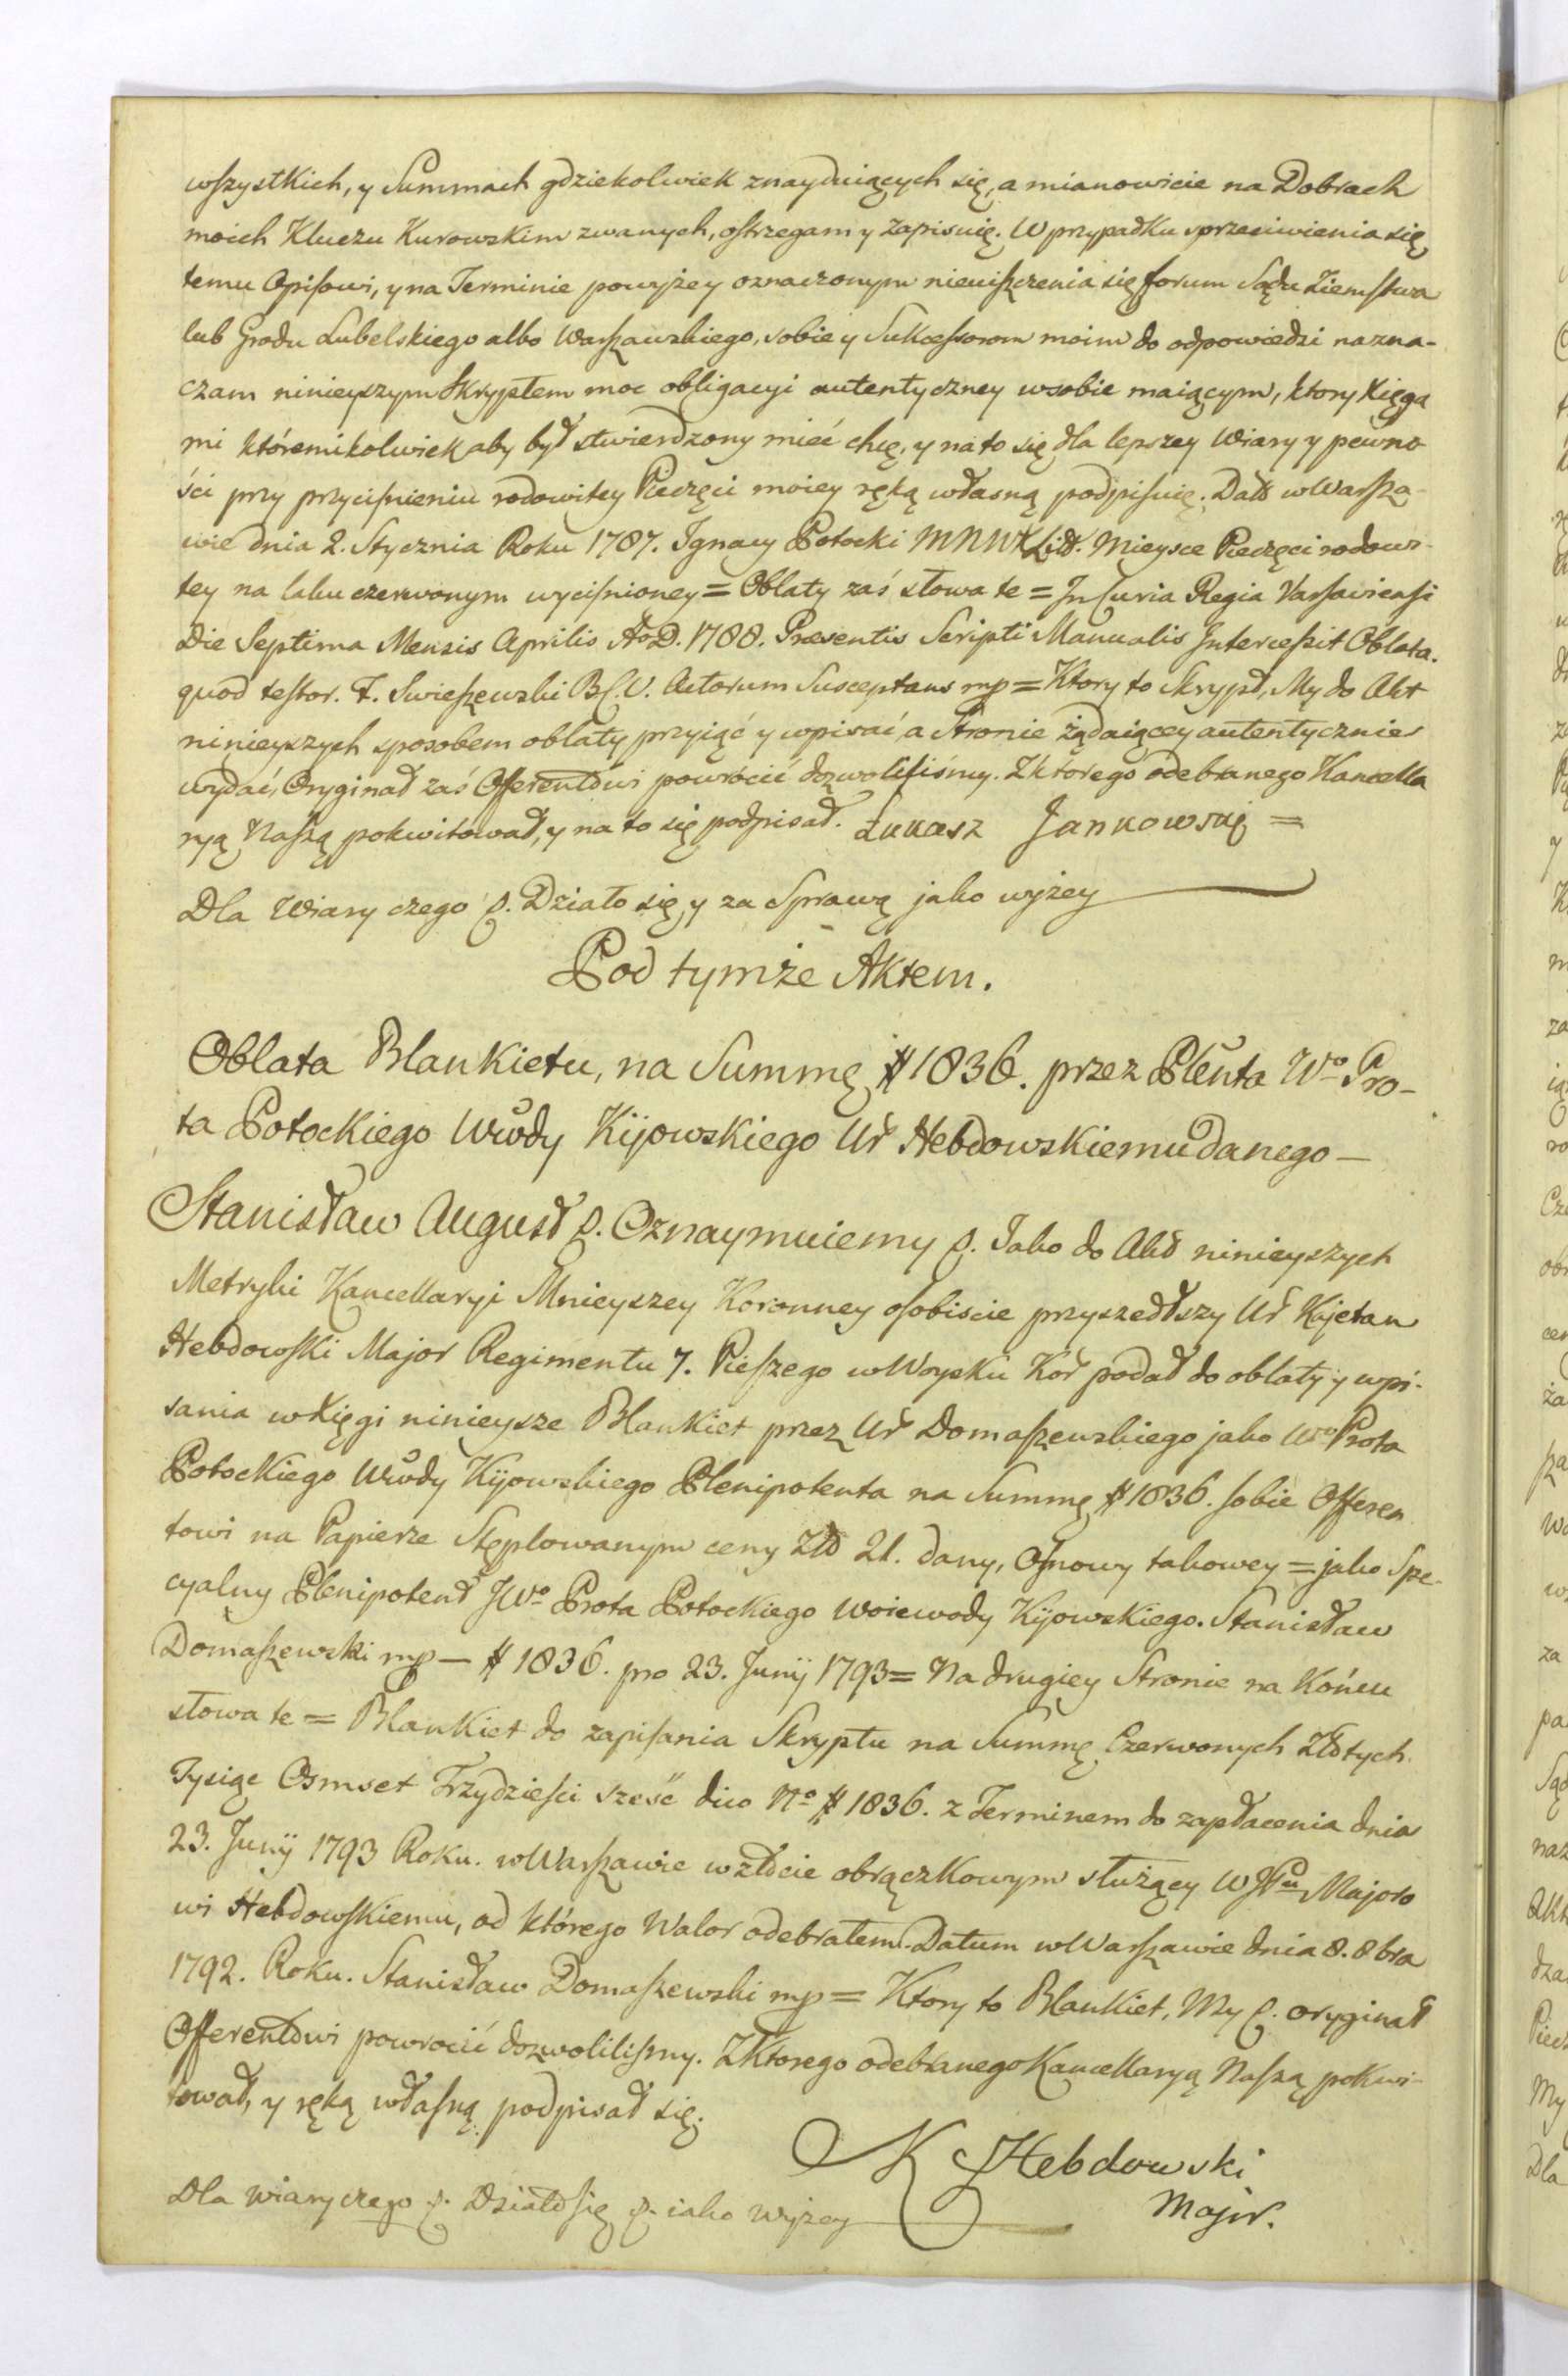 wszystkich, y Summach gdziekolwiek znayduiących się, a mianowicie na Dobrach
moich Kluczu Kurowskim zwanych, ostrzegam y zapisuię. W przypadku sprzeciwienia się
temu Opisowi, y na Terminie powyżey oznaczonym nieuiszczenia się forum Sądu Ziemstwa
lub Grodu Lubelskiego albo Warszawskiego, sobie y Sukcessorom moim do odpowiedzi nazna-
czam ninieyszym Skryptem moc obligacyi autentyczney w sobie maiącym, ktory Xięga
mi któremikolwiek aby był stwierdzony mieć chcę, y na to się dla lepszey Wiary y pewno
ści przy przyciśnieniu rodowitey Pieczęci moiey ręką własną podpisuię. Datt w Warsza-
wie dnia 2. Stycznia Roku 1787. Ignacy Potocki MNWXLitt. Mieysce Pieczęci rodowi-
tey na laku czerwonym wyciśnioney = Oblaty zaś słowa te = In Curia Regia Varsaviensi
Die Septima Mensis Aprilis Ao D. 1788. Præsentis Scripti Manualis Intercessit Oblata.
quod testor. F. Swieszewski B.C.V. Actorum Susceptans mp = Ktory to Skrypt, My do Akt
ninieyszych sposobem oblaty przyiąć y wpisać, a Stronie żądaiącey autentycznie
wydać, Oryginał zaś Offerentowi powrócić dozwoliliśmy. Z którego odebranego Kancella
ryą Naszą pokwitował, y na to się podpisał. Łukasz Jankowski =
Dla Wiary czego p. Działo się, y za Sprawą jako wyżey
Pod tymże Aktem.
Oblata Blankietu, na Summę # 1836. przez Plenta Wo Pro-
ta Potockiego Wwdy Kijowskiego Ur Hebdowskiemu danego —
Stanisław August p. Oznaymuiemy p. Jako do Akt ninieyszych
Metryki Kancellaryi Mnieyszey Koronney osobiscie przyszedłszy Ur Kajetan
Hebdowski Major Regimentu 7. Pieszego w Woysku Kor podał do oblaty y wpi-
sania w Xięgi ninieysze Blankiet przez Ur Domaszewskiego jako Wo Prota
Potockiego Wwdy Kijowskiego Plenipotenta na Summę # 1836. sobie Offeren
towi na Papierze Stęplowanym ceny Złł 21. dany, Osnowy takowey = jako Spe-
cyalny Plenipotent JWo Prota Potockiego Woiewody Kijowskiego. Stanisław
Domaszewski mp — # 1836. pro 23. Junij 1793 = Na drugiey Stronie na Końcu
słowa te = Blankiet do zapisania Skryptu na Summę Czerwonych Złotych
Tysiąc Osmset Trzydziesci sześć dico No # 1836. z Terminem do zapłacenia dnia
23. Junij 1793 Roku. w Warszawie w złocie obrączkowym służący WJPu Majoro
wi Hebdowskiemu, od którego Walor odebrałem. Datum w Warszawie dnia 8. 8bra
1792. Roku. Stanisław Domaszewski mp = Ktory to Blankiet, My p. oryginał
Offerentowi powrocić dozwolilismy. Z Ktorego odebranego Kancellaryą Naszą pokwi-
tował, y ręką własną podpisał się.
K Hebdowski
Major.
Dla wiary czego p. Działo się p. iako wyżey